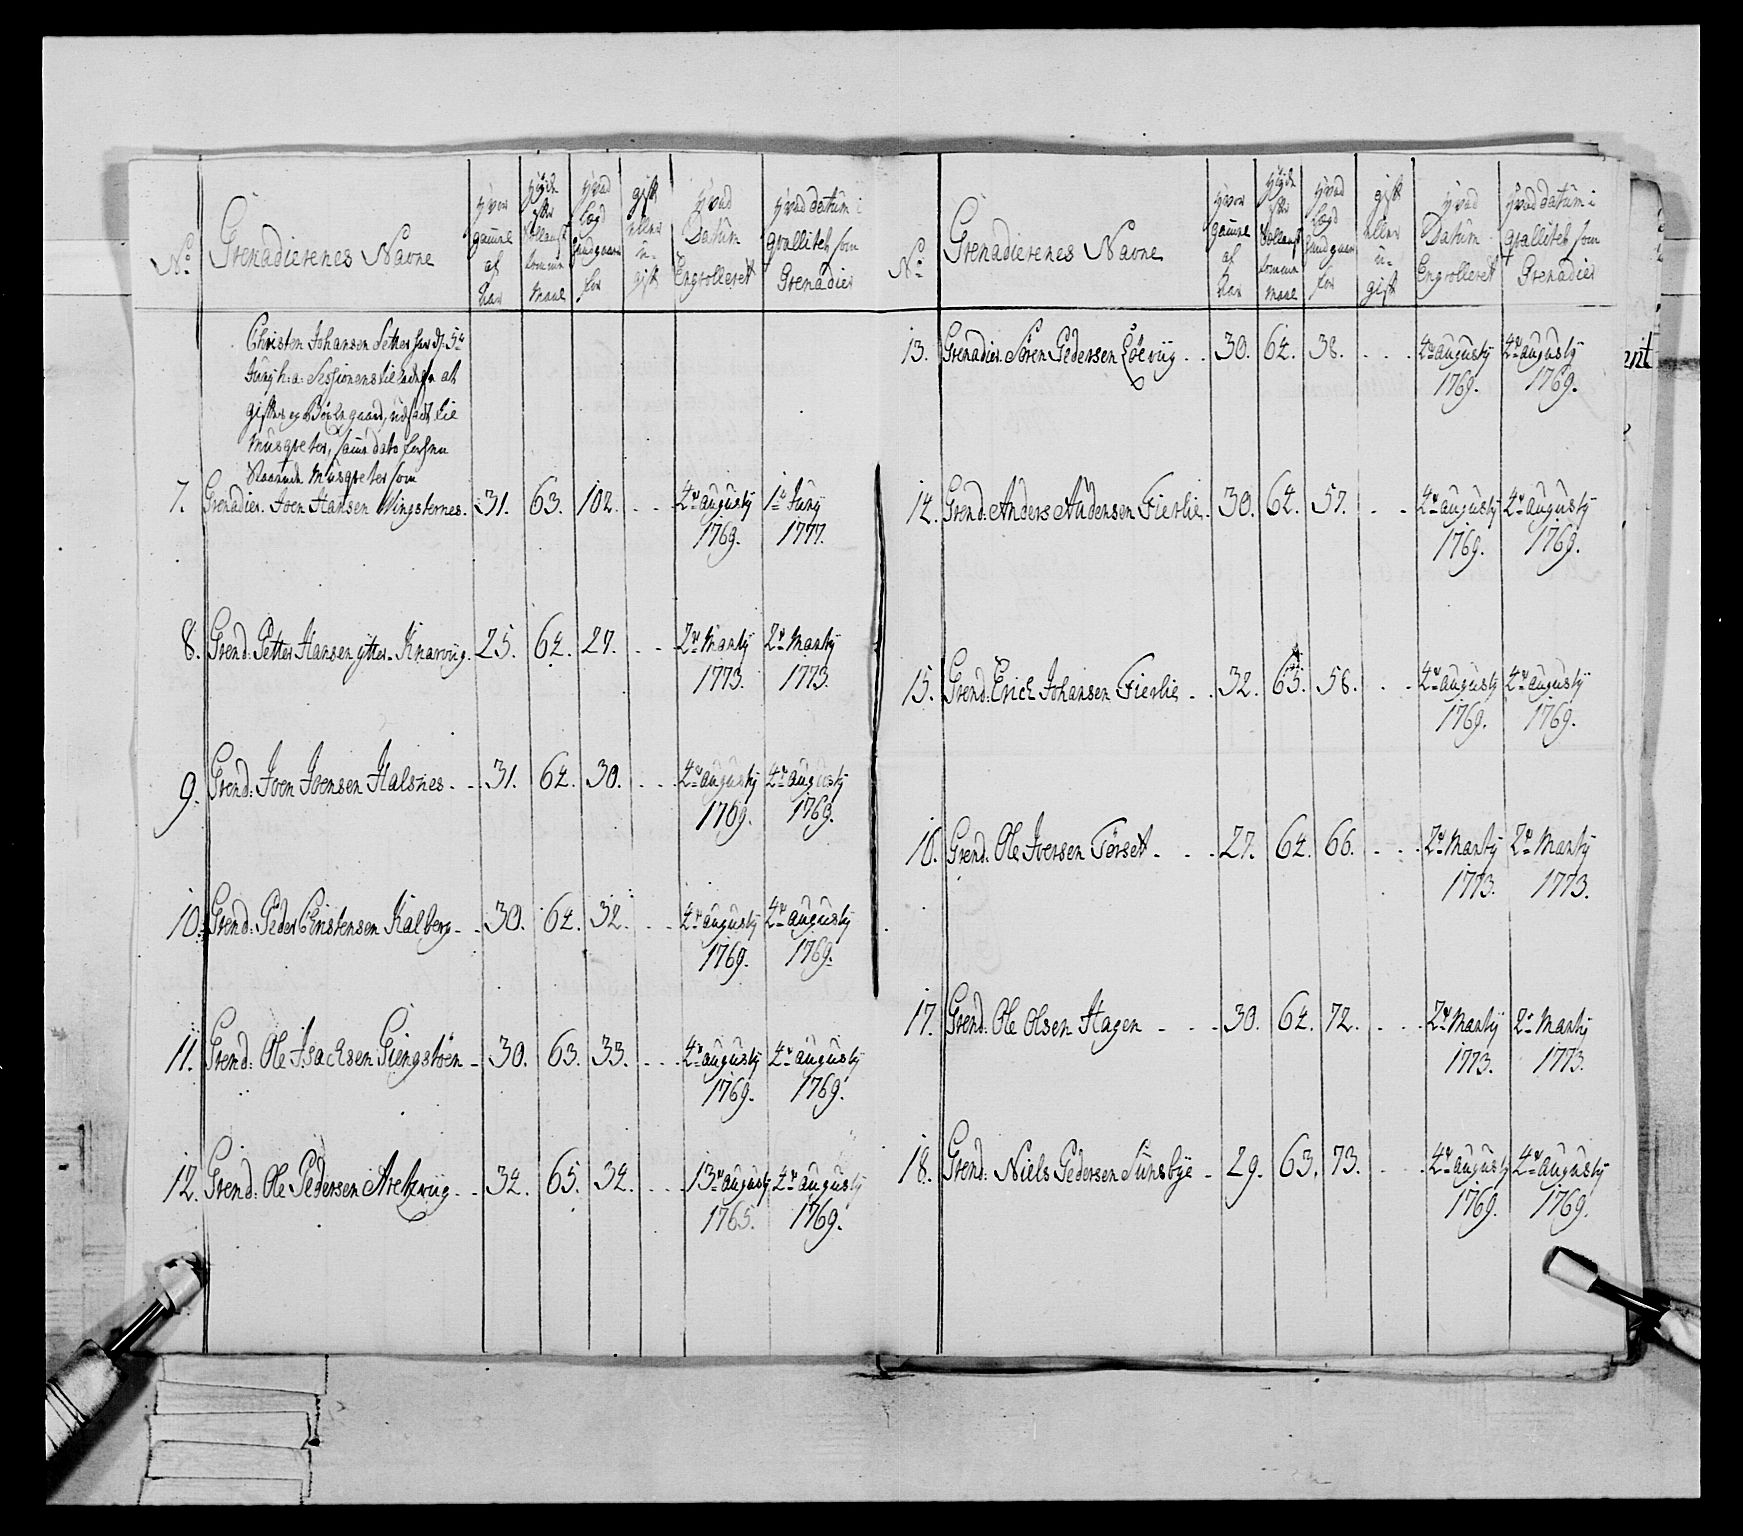 No
Grenadierenes Navne
hvor gamle af Aar
høyde efter Sollensk tomme Maal
hvad Lægd Fundgaar for
gift eller u-gift
hvad Datum Engrolleret
hvad datum i qvallitet som Grenadier
Christen Johansen Setter har d: 5te
Juny h: a: Sessionens tilladelse at
giftes
Musqveter, samme dato
Staaende Musqveter som
7. Grenadier. Joen Hansen Wingsternes. 31. 63. 102. - - 4de augusty 1769. 1te Juny 1777.
8. Grend: Petter Hansen ytter-Knarvig. 25. 64. 27. - - 2de Marty 1773. 2de Marty 1773.
9. Grend: Joen Joensen Halsnes - - 31. 64. 30. - - 4de augusty 1769. 4de augusty 1769.
10. Grend: Peder Christensen Kalberg - - 30. 64. 32. - - 4de augusty 1769. 4de augusty 1769.
11. Grend: Ole Isachsen Giengstøen - 30. 63. 33. - - 4de augusty 1769. 4de augusty 1769.
12. Grend: Ole Pedersen Arekvig - - 34. 65. 34. - - 13de augusty 1765. 4de augusty 1769.
No
Grenadierenes Navne
hvor gamle af Aar
høyde efter Sollensk tomme Maal
hvad Lægd Fundgaar for
gift eller u-gift
hvad Datum Engrolleret
hvad datum i qvallitet som Grenadier
13. Grenadier. Søren Pedersen Løevig - - 30. 64. 38. - - 4de augusty 1769. 4de augusty 1769.
14. Grend: Anders Andersen Fierlie. 30. 64. 57. - - 4de augusty 1769. 4de augusty 1769.
15. Grend: Erich Johansen Fierlie - - 32. 65. 58. - - 4de augusty 1769. 4de augusty 1769.
16. Grend: Ole IversenFørset - - - 27. 64. 66. - - 2de Marty 1773. 2de Marty 1773.
17. Grend: Ole Olsen Hagen - - - 30. 64. 72. - - 2de Marty 1773. 2de Marty 1773.
18. Grend: Niels Pedersen Sunsbye - 29. 63. 73. - - 4de augusty 1769. 4de augusty 1769.